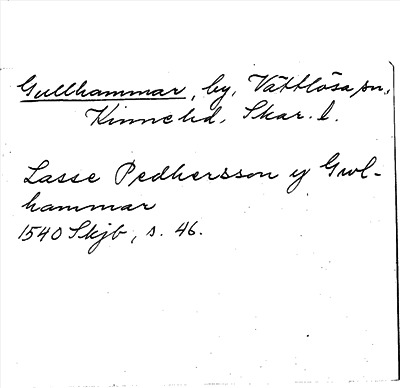 Gullhammar, by, Vättlösa sn,
Kinne hd, Skar. l.
Lasse Pedhersson y Gwl-
hammar
1540 Skjb, s. 46.